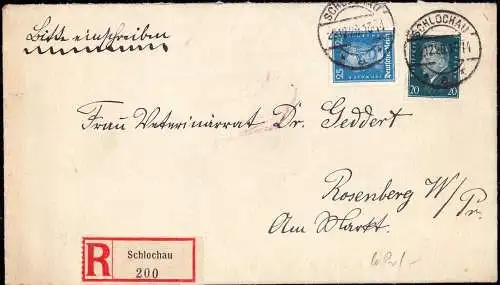 Bitte einschreiben
SCHLOCHAU
SCHLOCHAU
25
Deutsches Reich
20 20
Frau Veterinärrat Dr. Geddert
Rosenberg W/Pr.
Am Markt.
R
Schlochau
200